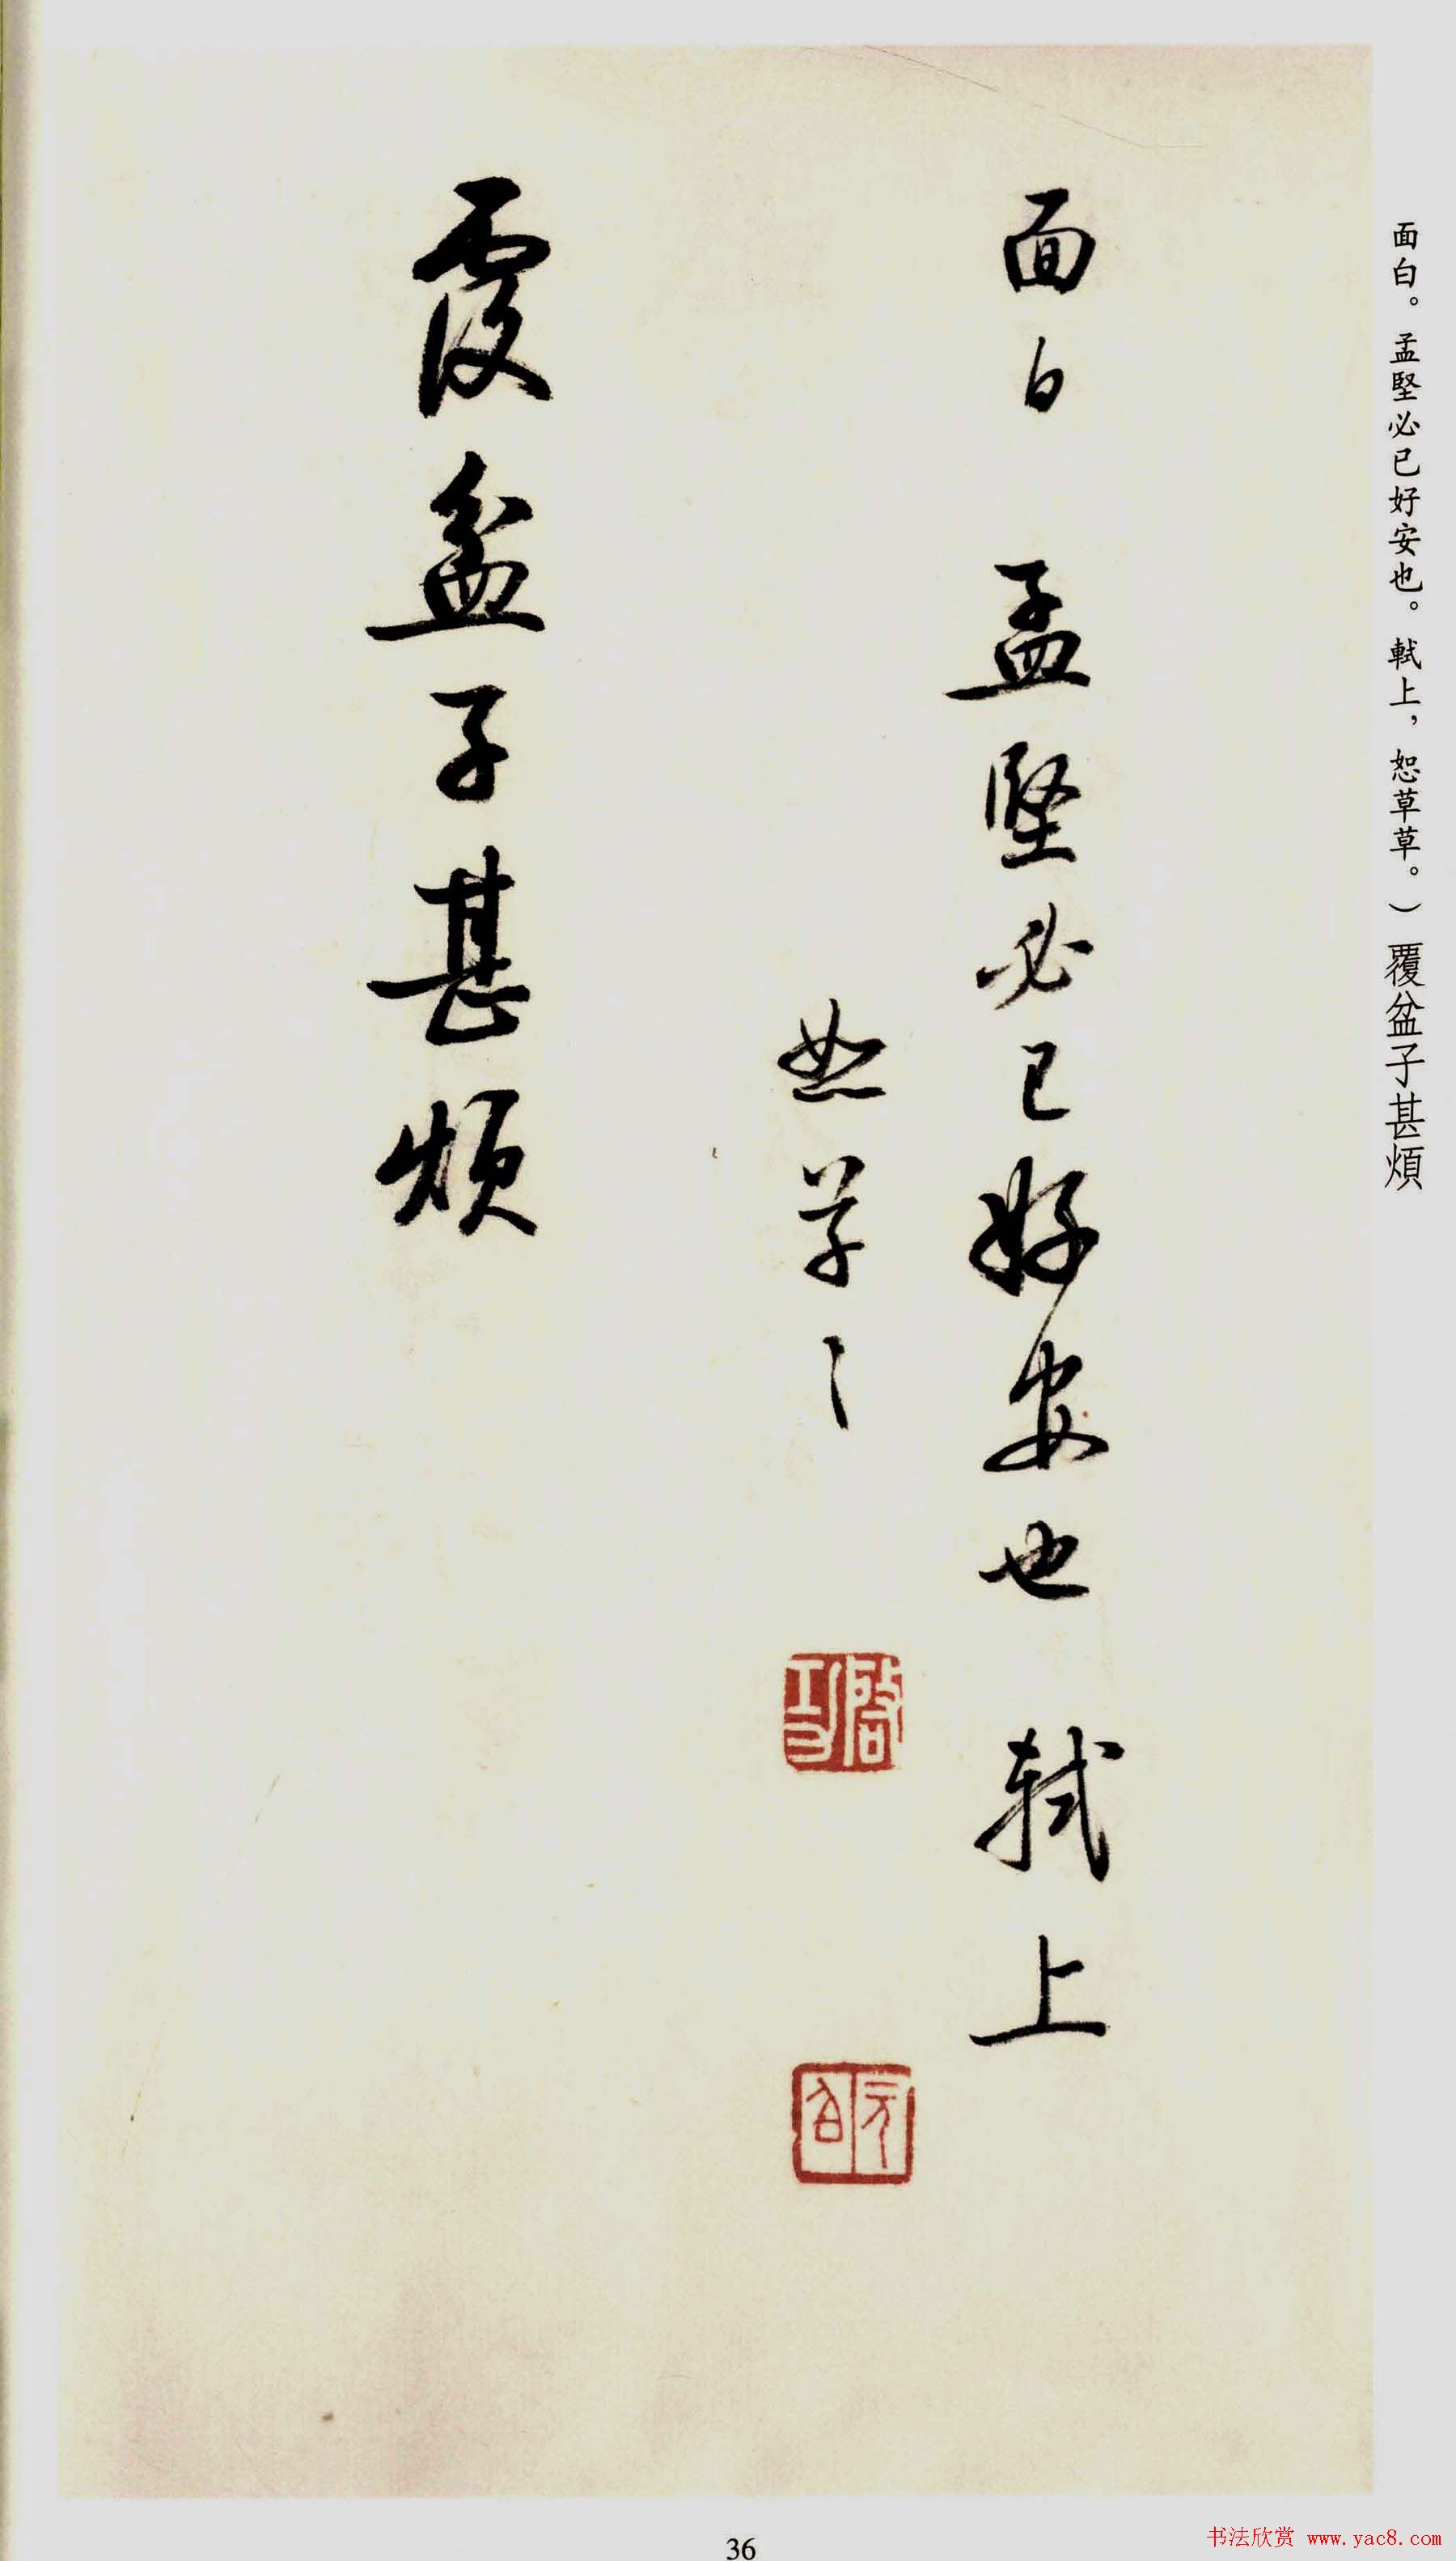 面白。孟堅必已好安也。軾上，恕草草。）覆盆子甚煩
面白　孟堅必已好安也　軾上
恕草〻
啓功
元白
覆盆子甚煩
36
书法欣赏 www.yac8.com